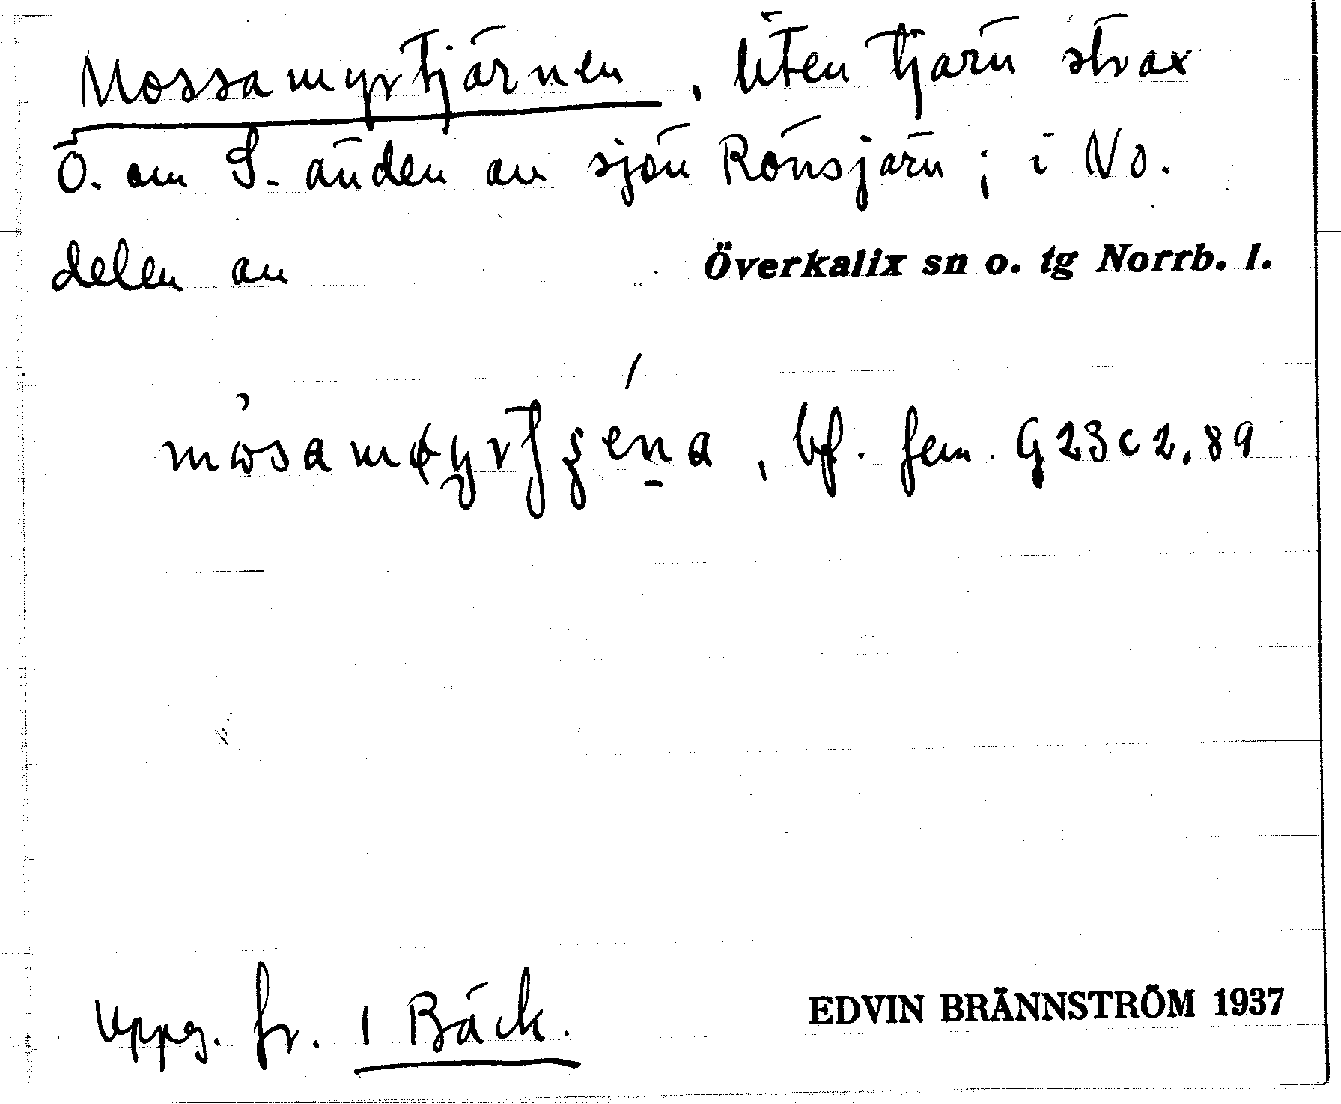 Mossamyrtjärnen, liten tjärn strax
Ö. om S. änden av sjön Rönsjärn; i NÖ.
delen av Överkalix sn o. tg Norrb. l.
bf. fem. G23c2,89
Uppg. fr. 1 Bäck.
EDVIN BRÄNNSTRÖM 1937